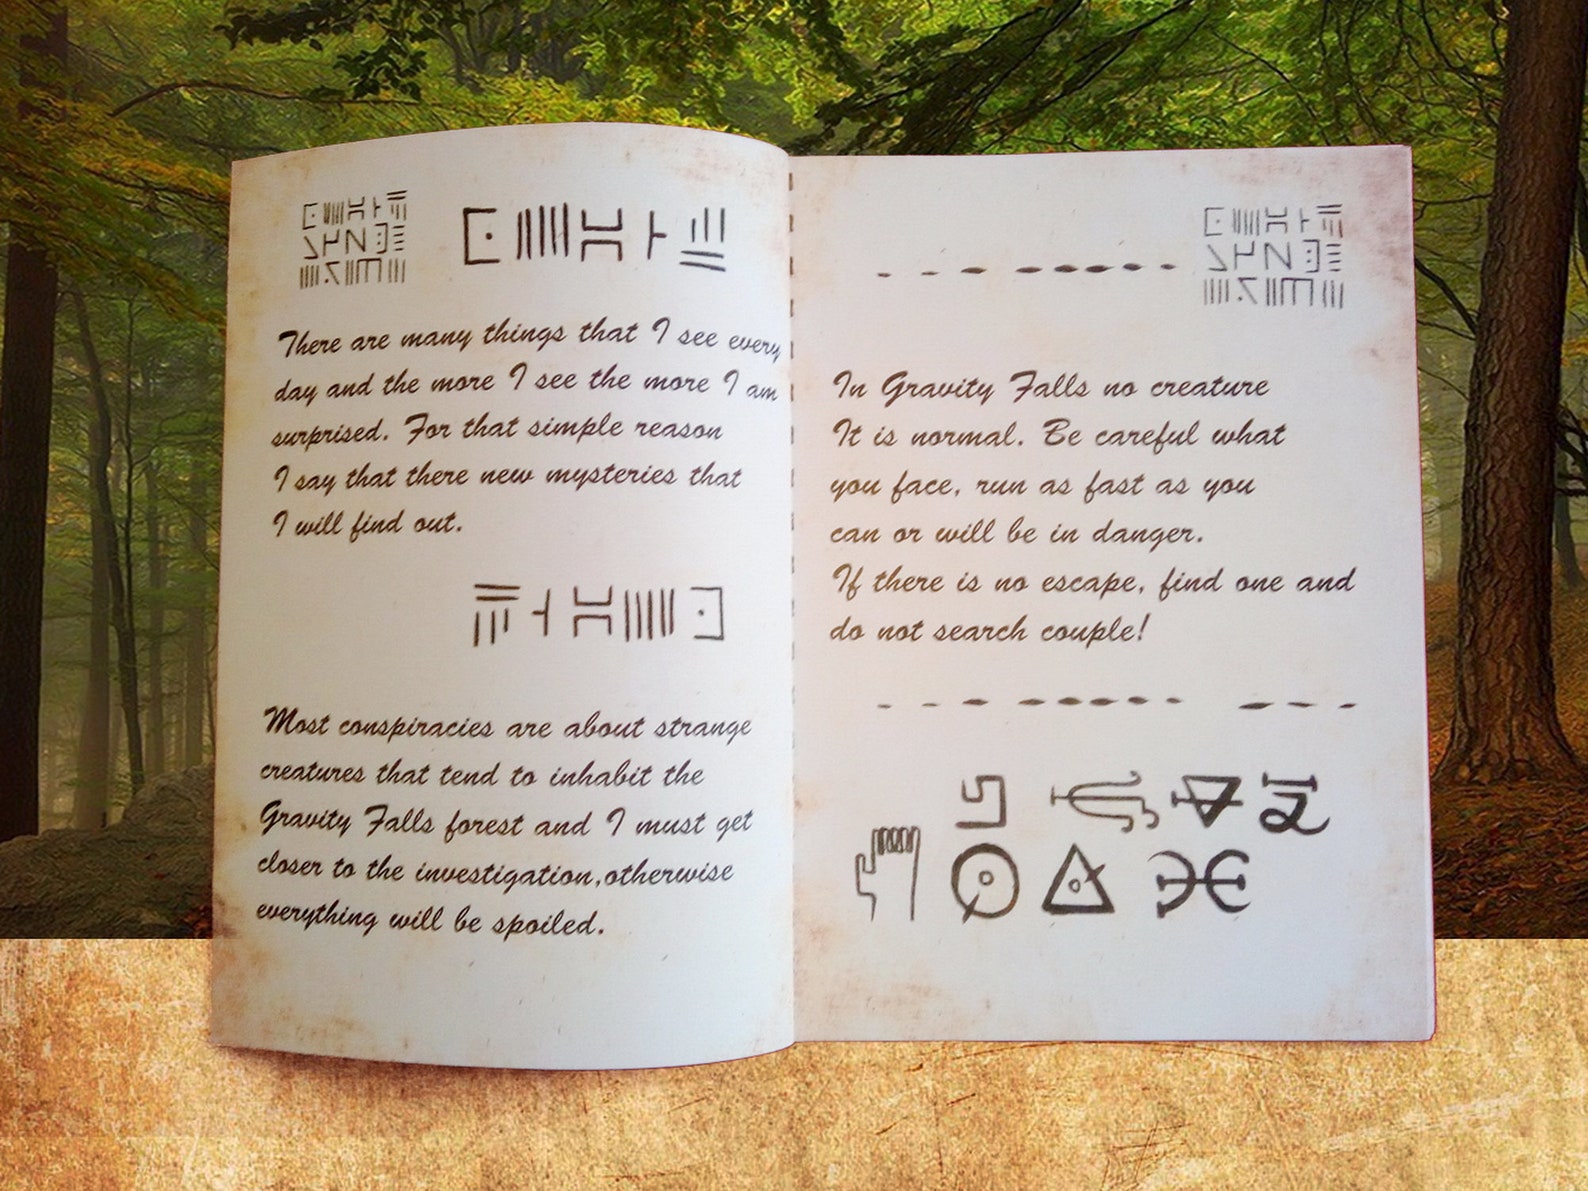 There are many things that I see every
day and the more I see the more I am
surprised. For that simple reason
I say that there new mysteries that
I will find out.
Most conspiracies are about strange
creatures that tend to inhabit the
Gravity Falls forest and I must get
closer to the investigation,otherwise
everything will be spoiled.
In Gravity Falls no creature
It is normal. Be careful what
you face, run as fast as you
can or will be in danger.
If there is no escape, find one and
do not search couple!